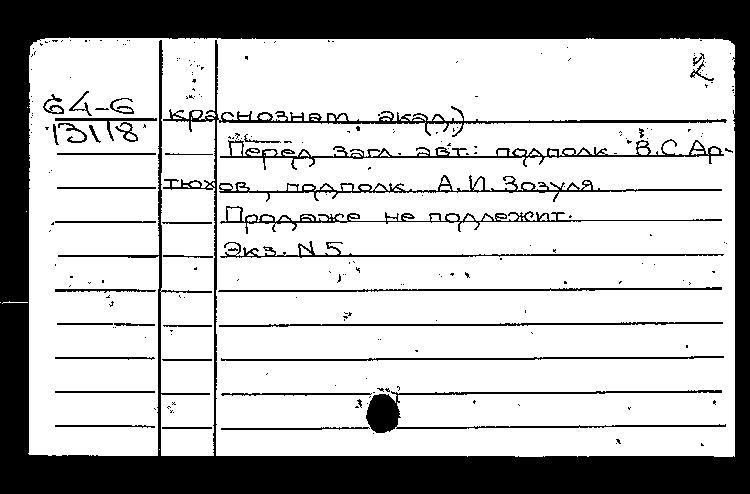 2
64-6 краснознам. акад.)
13118
Перед загл. авт.: подполк. В.С. Ар-
тюхов, подполк. А.И. Зозуля.
Продаже не подлежит.
Экз. N 5.